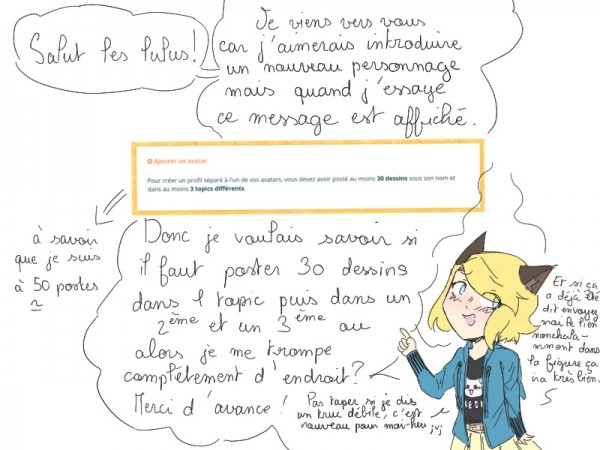 Salut les lulus!
Je viens vers vous
car j'aimerais introduire
un nouveau personnage
mais quand j'essaye
ce message est affiché.
Ajouter un avatar
Pour créer un profil séparé à l'un de vos avatars, vous devez avoir posté au moins 30 dessins sous son nom et
dans au moins 3 topics différents.
à savoir
que je suis
à 50 postes
Donc je voulais savoir si
il faut poster 30 dessins
dans 1 topic puis dans un
2ème et un 3ème ou
alors je me trompe
complètement d'endroit?
Merci d'avance!
Pas taper si je dis
un truc débile, c'est
nouveau pour moi-heu
Et si ça
a déjà été
dit envoyez
moi le lien
nonchala-
mment dans
la figure ça
ira très bien.
MEOW